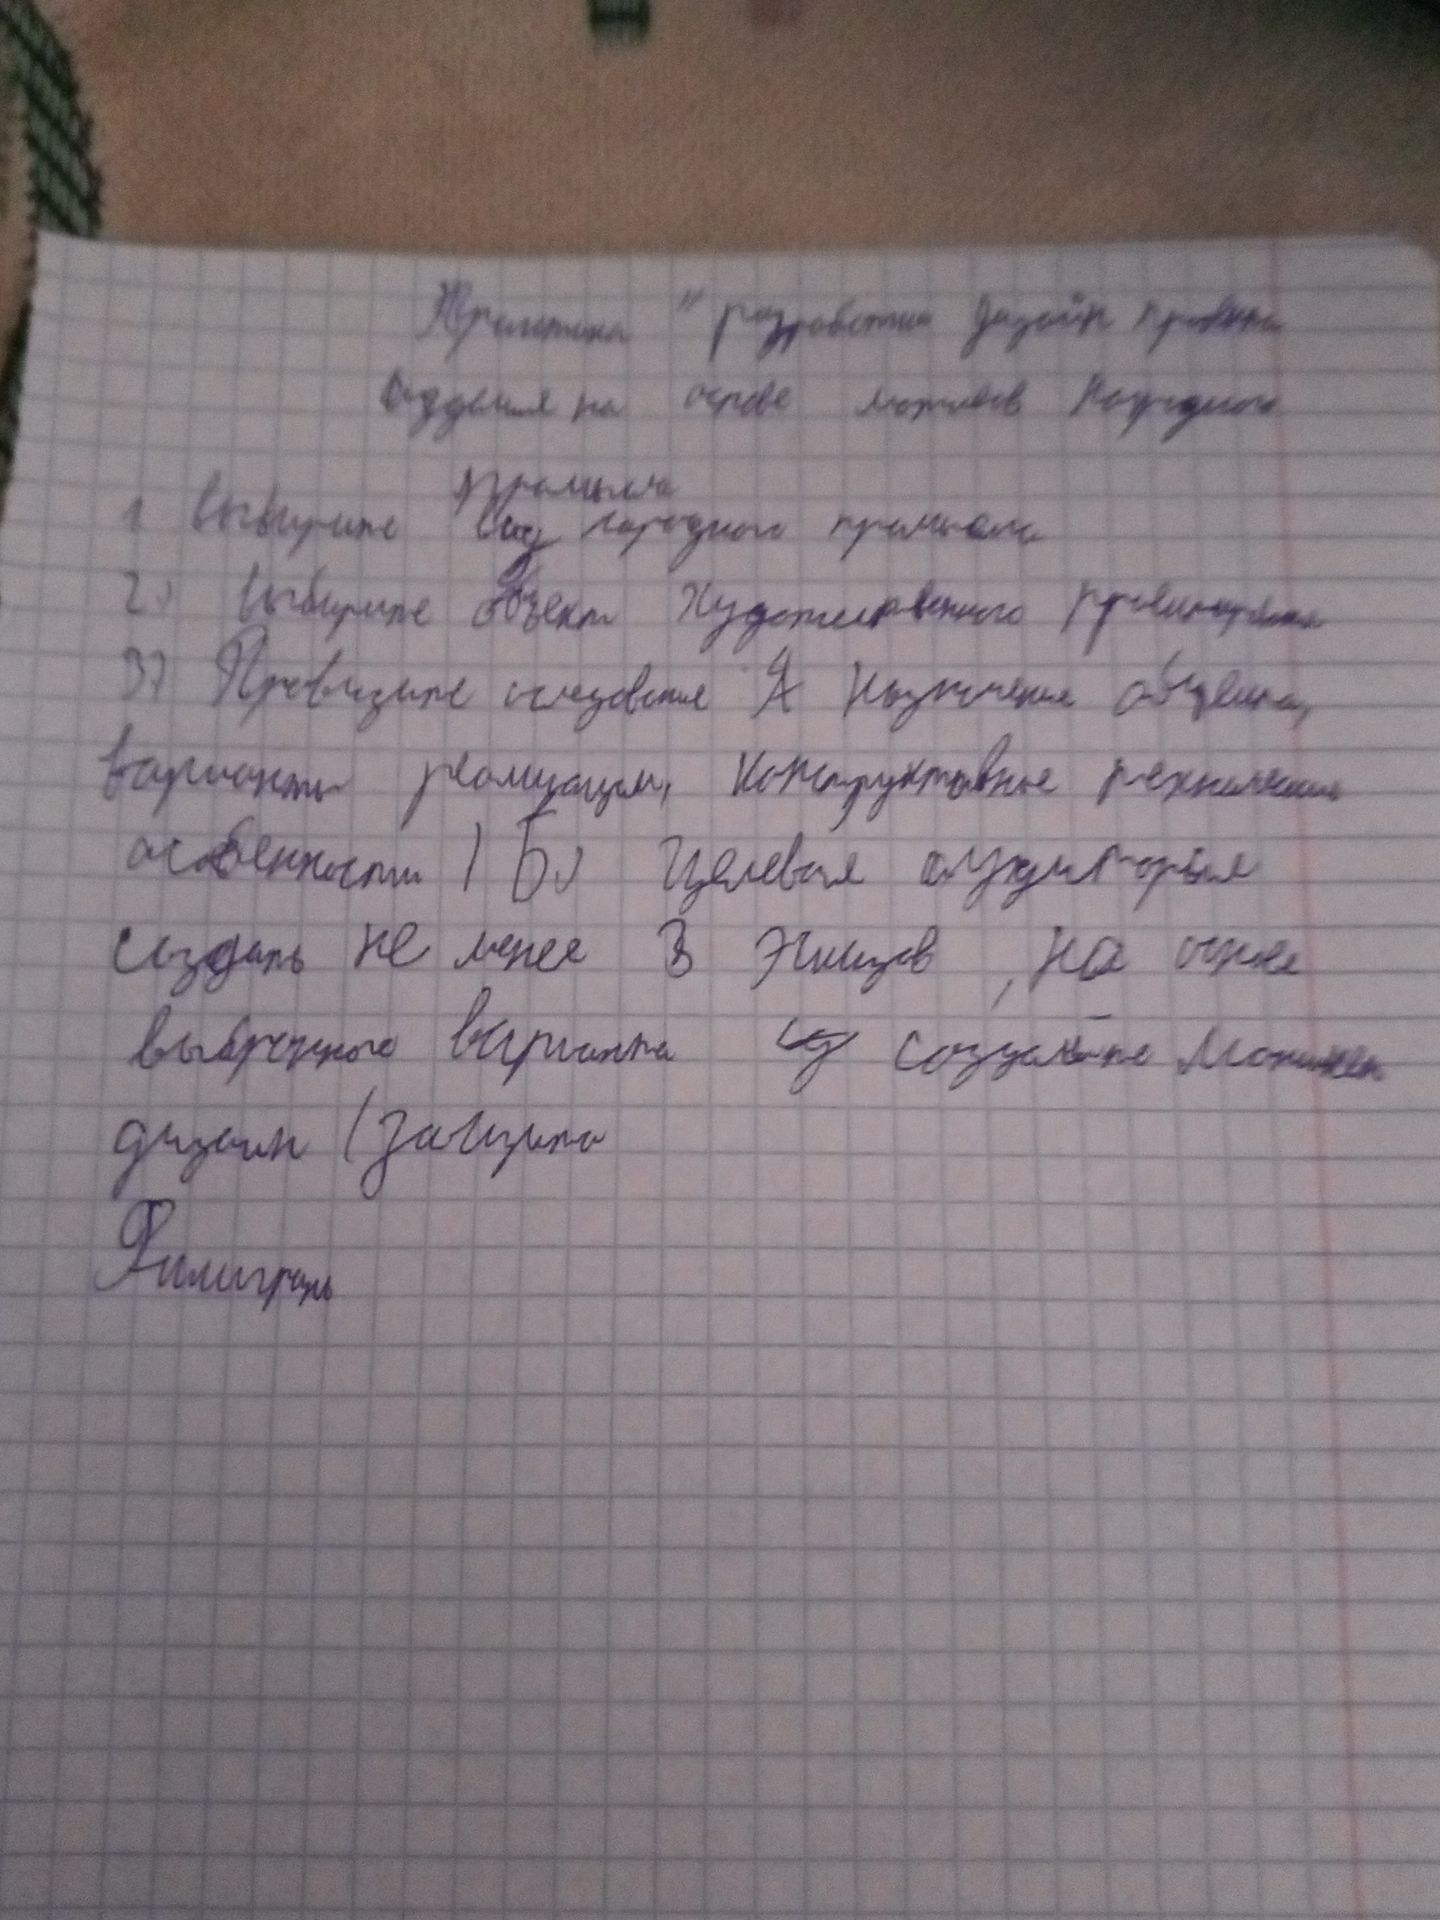 "разработка дизайн проекта
на основе мотивов народного
промысла
1 Выберите вид народного промысла
2) Выберите объект художественного проектирования
3) Проведите исследование А назначение объекта,
варианты реализации, конструктивные технические
особенности | Б) Целевая аудитория
создать не менее 3 Эскизов, на основе
выбранного варианта создайте
дизайн (защита
Филигрань